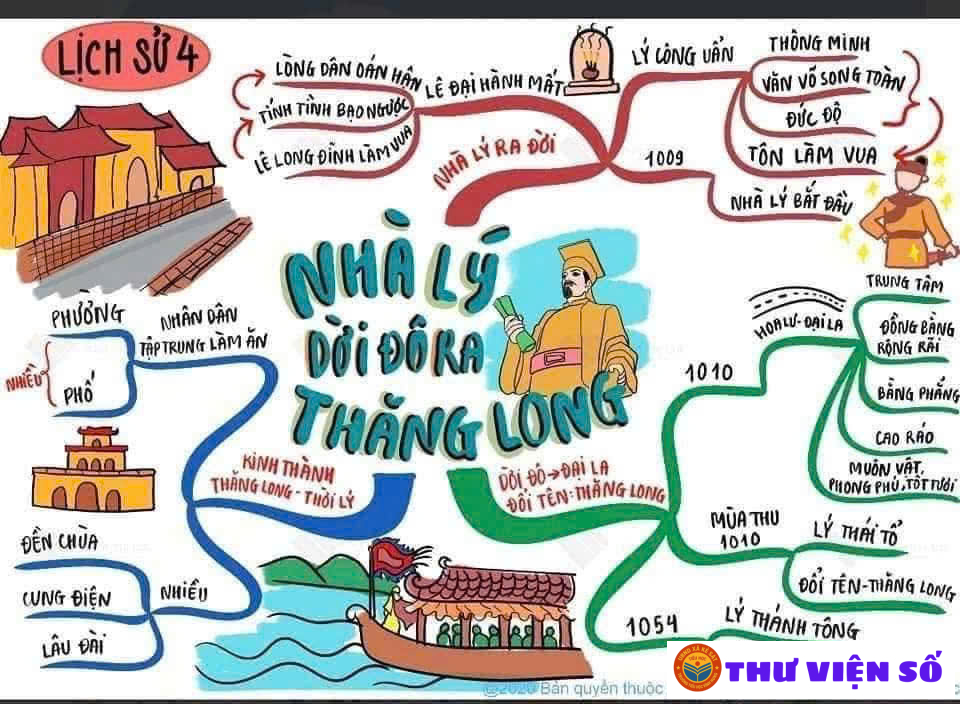 LỊCH SỬ 4
LÒNG DÂN OÁN HẬN
TÍNH TÌNH BẠO NGƯỢC
LÊ LONG ĐĨNH LÀM VUA
LÊ ĐẠI HÀNH MẤT
NHÀ LÝ RA ĐỜI
LÝ CÔNG UẨN
THÔNG MINH
VĂN VÕ SONG TOÀN
ĐỨC ĐỘ
TÔN LÀM VUA
1009
NHÀ LÝ BẮT ĐẦU
NHÀ LÝ
DỜI ĐÔ RA
THĂNG LONG
PHƯỜNG
PHỐ
NHIỀU
NHÂN DÂN
TẬP TRUNG LÀM ĂN
KINH THÀNH
THĂNG LONG - THỜI LÝ
ĐỀN CHÙA
CUNG ĐIỆN
LÂU ĐÀI
NHIỀU
DỜI ĐÔ → ĐẠI LA
ĐỔI TÊN: THĂNG LONG
1010
HOA LƯ - ĐẠI LA
TRUNG TÂM
ĐỒNG BẰNG
RỘNG RÃI
BẰNG PHẲNG
CAO RÁO
MUÔN VẬT
PHONG PHÚ, TỐT TƯƠI
MÙA THU
1010
LÝ THÁI TỔ
ĐỔI TÊN - THĂNG LONG
1054
LÝ THÁNH TÔNG
@2020 Bản quyền thuộc
THƯ VIỆN SỐ